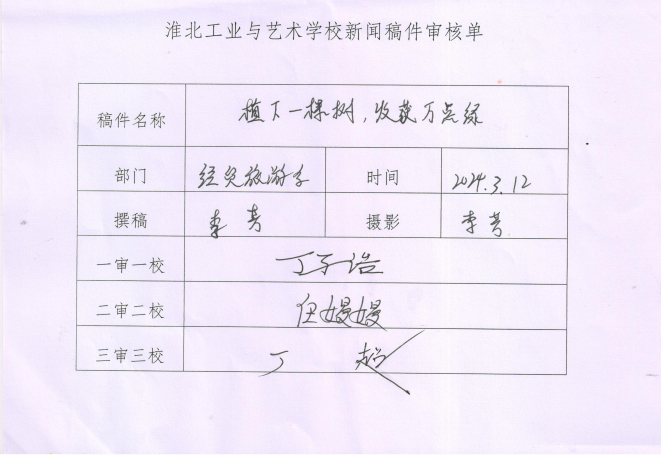 淮北工业与艺术学校新闻稿件审核单
稿件名称 植下一棵树,收获万点绿
部门 经贸旅游系 时间 2024.3.12
撰稿 李芳 摄影 李芳
一审一校 丁子浩
二审二校 伊嫚嫚
三审三校 丁